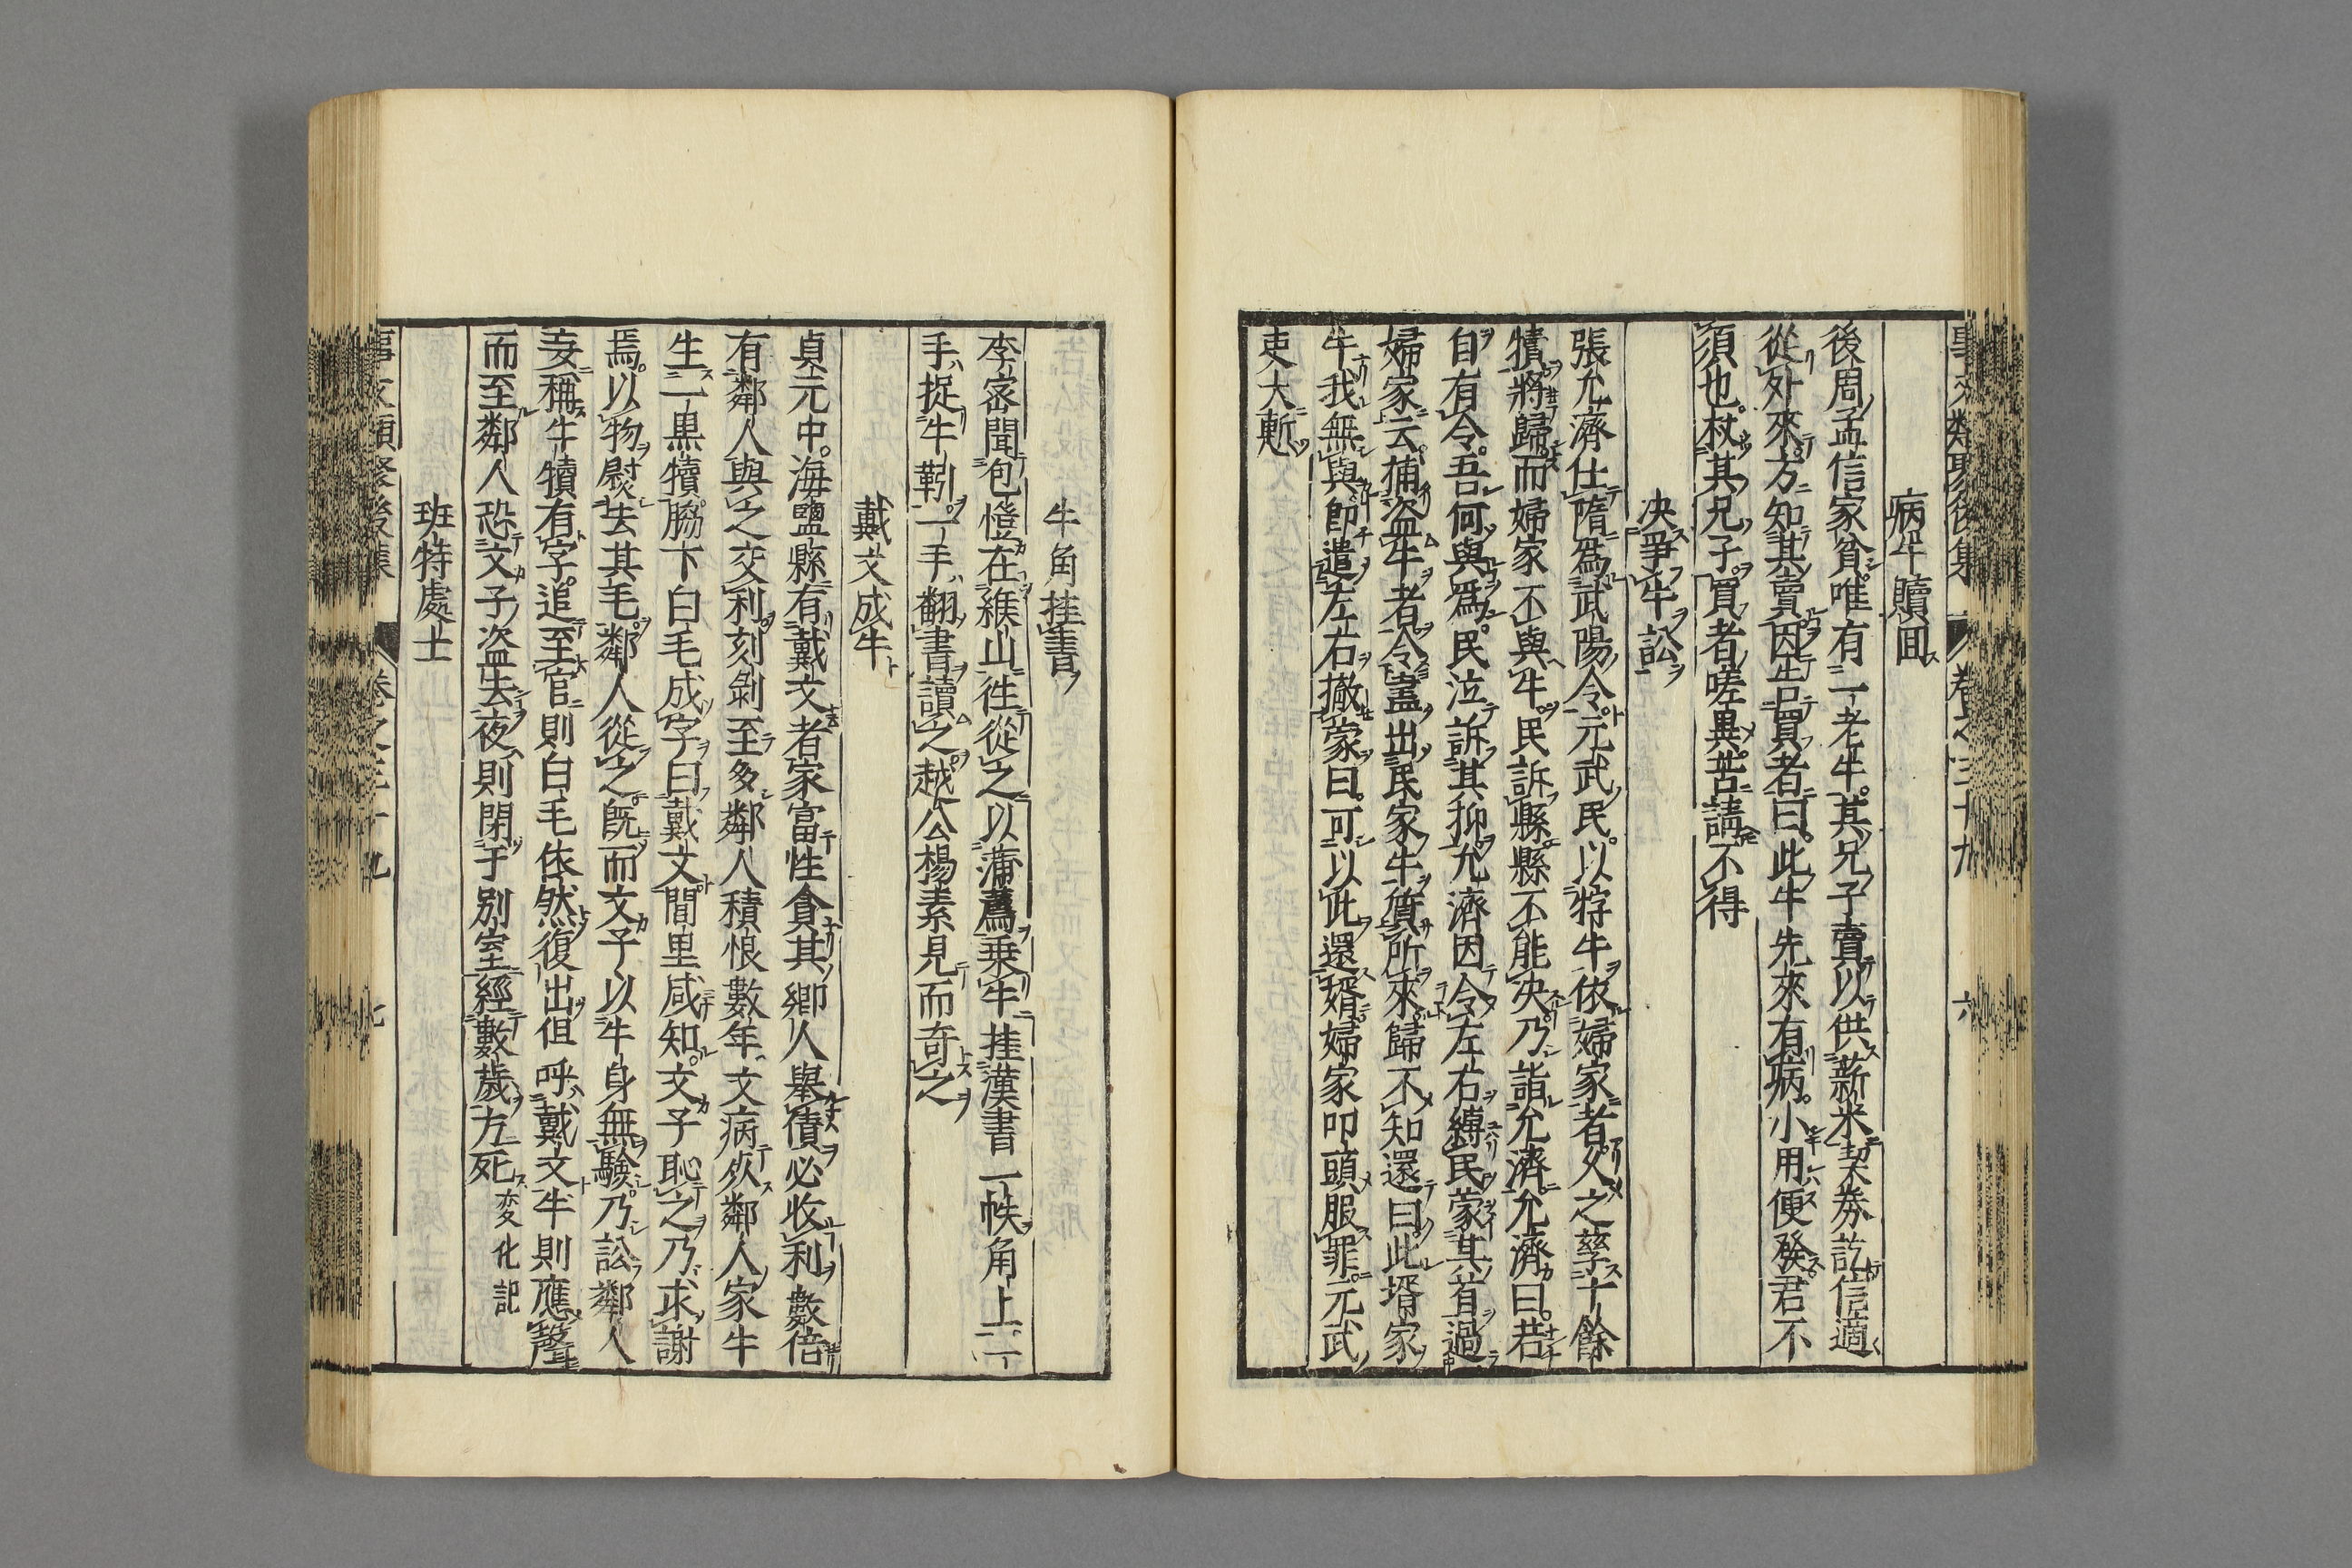 事文類聚後集 卷之三十九 六
病牛贖回
後周孟信家貧唯有一老牛其兄子賣以供薪米契券訖信適
從外來方知其賣因告買者曰此牛先來有病小用便發君不
須也杖其兄子買者嗟異苦請不得
决爭牛訟
張允濟仕隋爲武陽令元武民以牸牛依婦家者久之孳十餘
犢將歸而婦家不與牛民訴縣縣不能决乃詣允濟允濟曰若
自有令吾何與爲民泣訴其抑允濟因令左右縛民蒙其首過
婦家云捕盗牛者令盡出民家牛質所來歸不知還曰此壻家
牛我無與卽遣左右撤蒙曰可以此還婿婦家叩頭服罪元武
吏大慙
牛角挂書
李宻聞包愷在緱山徃從之以蒲薦乗牛挂漢書一帙角上一
手捉牛靷一手翻書讀之越公楊素見而奇之
戴文成牛
貞元中海鹽縣有戴文者家富性貪其鄉人舉債必收利數倍
有鄰人與之交利刻剝至多鄰人積恨數年文病死鄰人家牛
生一黒犢脇下白毛成字曰戴文閭里咸知文子恥之乃求謝
焉以物熨去其毛鄰人從之旣而文子以牛身無驗乃訟鄰人
妄稱牛犢有字追至官則白毛依然復出但呼戴文牛則應聲
而至鄰人恐文子盗去夜則閉于别室經數歲方死 变化記
班特處士
事文類聚後集 卷之三十九 七